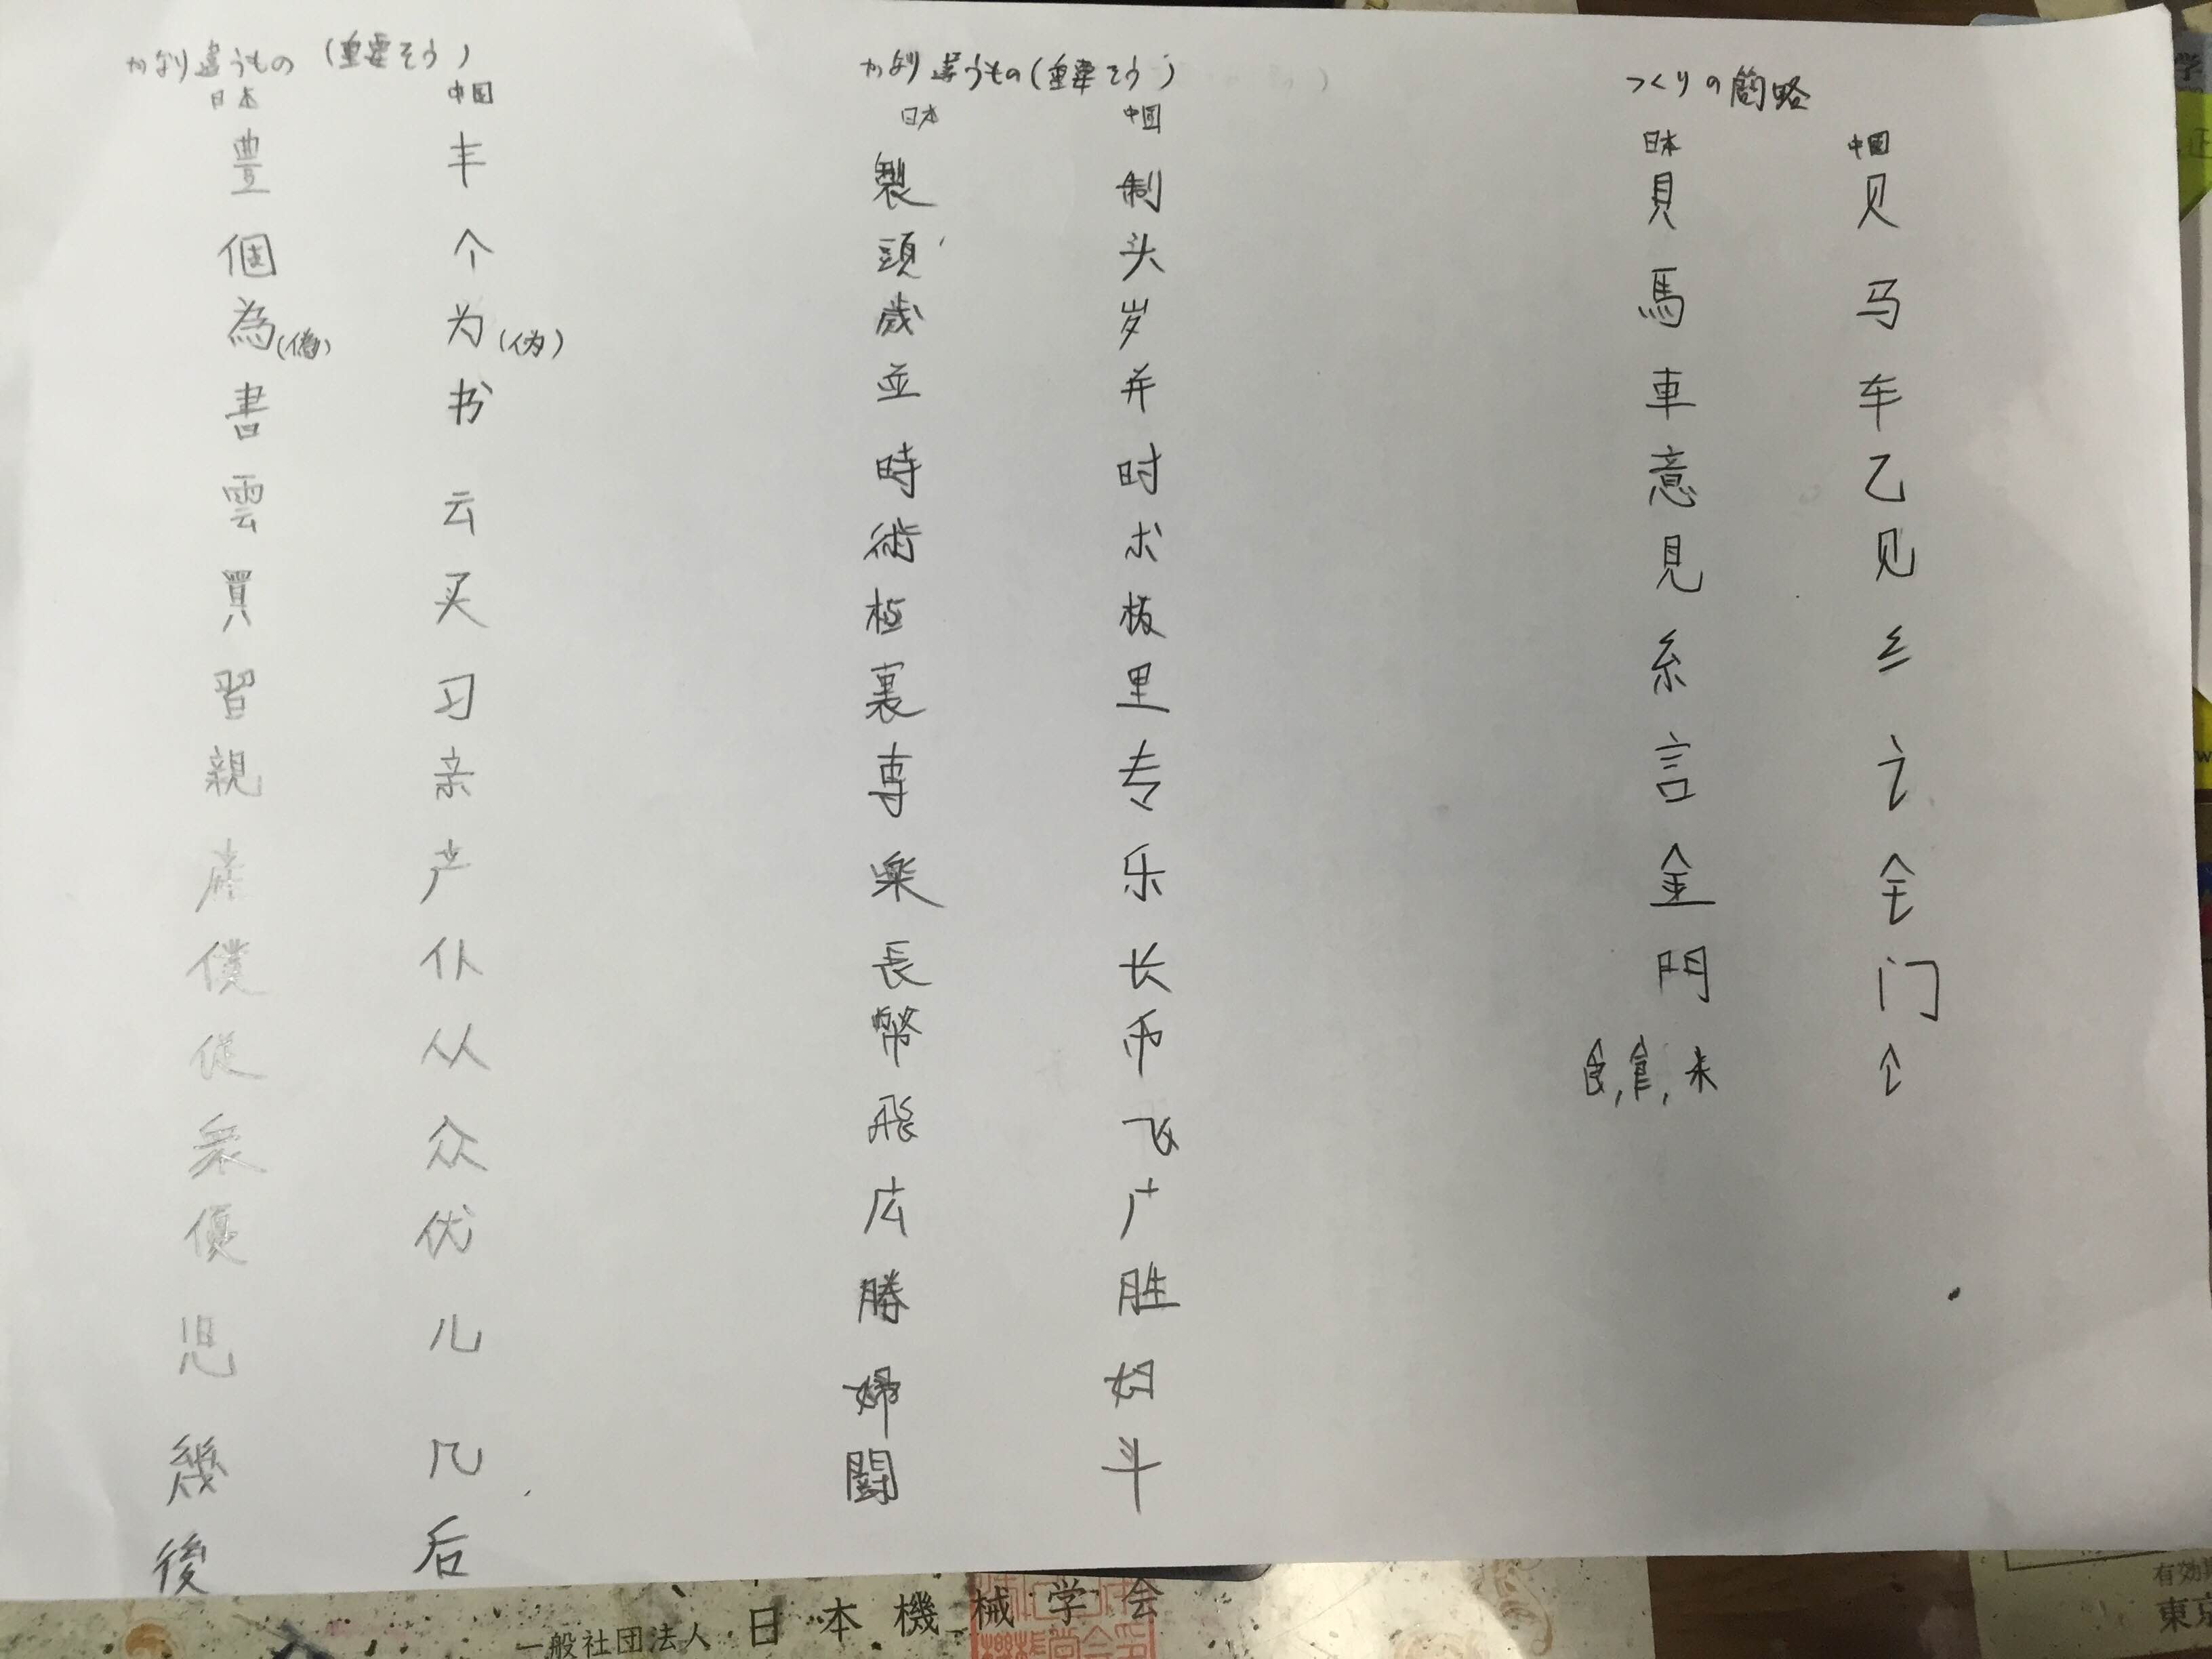 かなり違うもの (重要そう)
日本 中国
豊 丰
個 个
為(偽) 为(伪)
書 书
雲 云
買 买
習 习
親 亲
産 产
僕 仆
従 从
衆 众
優 优
児 儿
幾 几
後 后
かなり違うもの(重要そう)
日本 中国
製 制
頭 头
歳 岁
並 并
時 时
術 术
极
裏 里
専 专
楽 乐
長 长
幣 币
飛 飞
広 广
勝 胜
婦 妇
闘 斗
つくりの簡略
日本 中国
貝 贝
馬 马
車 车
意 乙
見 见
糸 纟
言 讠
金 钅
門 门
食,飠, 饣
一般社団法人 日本機械学会
学
正
有効期
東京